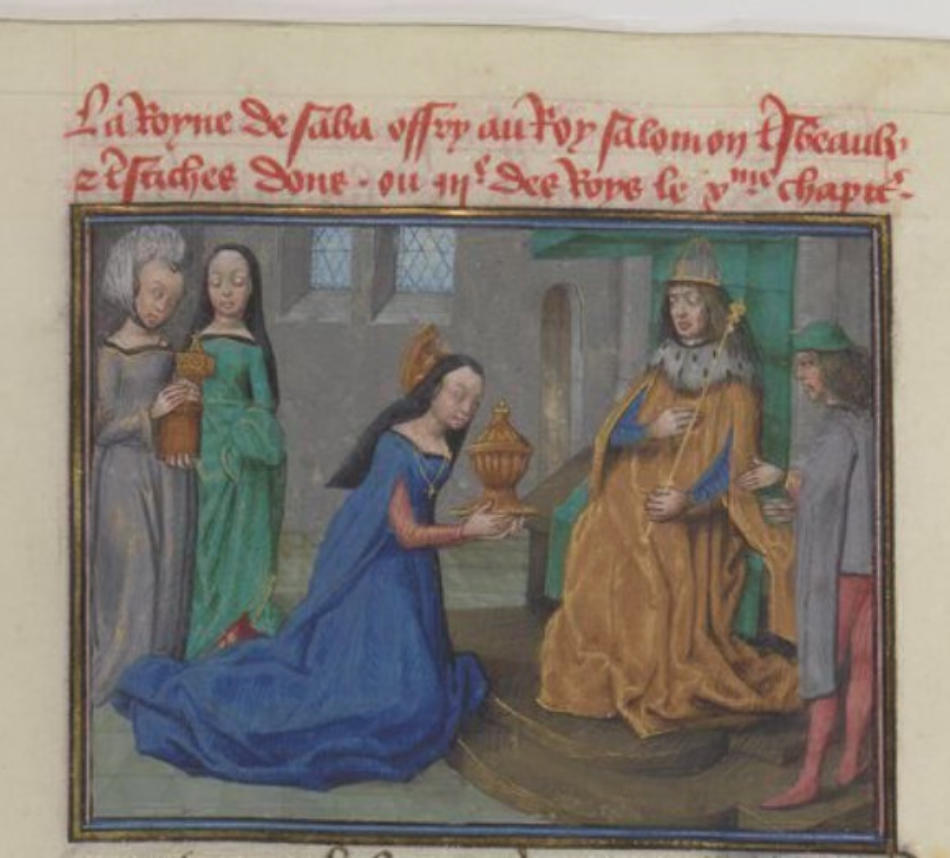 La Royne de saba offry au Roy salomon tsbeaulx
z tsriches dons . ou iijᵉ des Roys le xᵐᵉ chapitʳ.